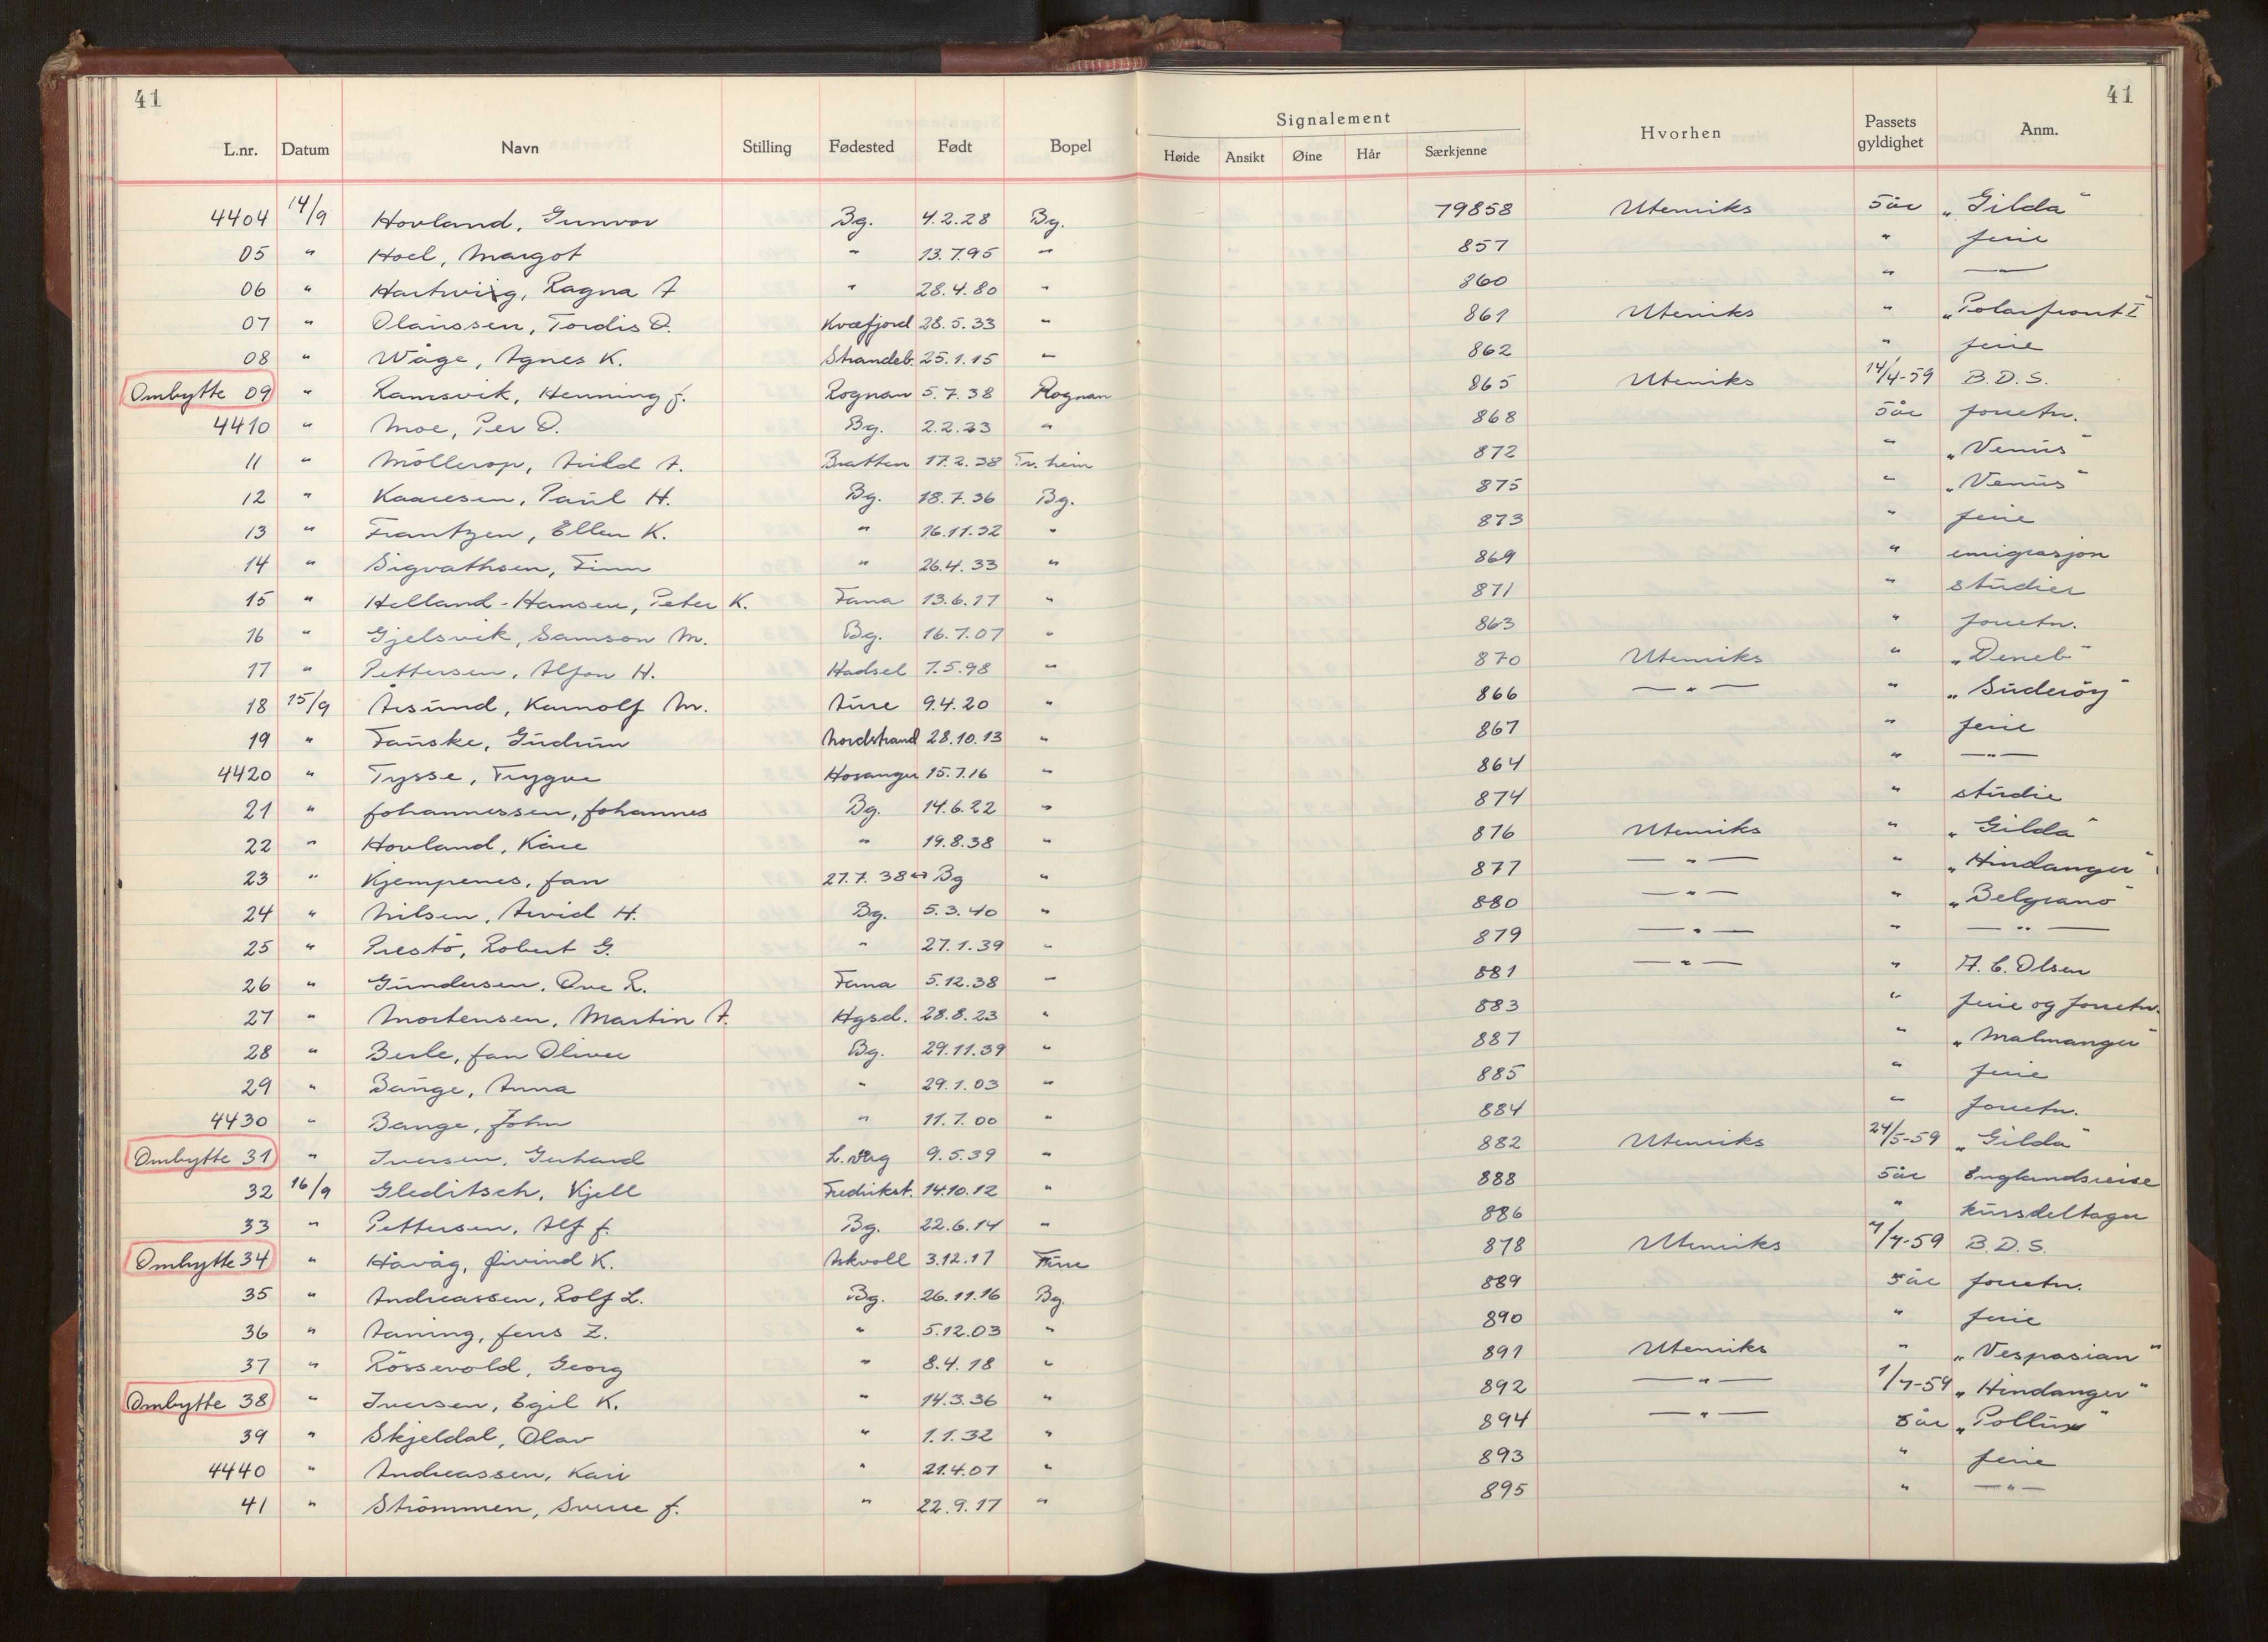 41 41
Signalement
L.nr. Datum Navn Stilling Fødested Født Bopel Høide Ansikt Øine Hår Særkjenne Hvorhen Passets gyldighet Anm.
4404 14/9 Hovland, Gunvor Bg. 4.2.28 Bg. 79858 Utenriks 5 år „Gilda"
05 " Hoel, Margot " 13.7.95 " 857 " ferie
06 " Hartwig, Ragna A " 28.4.80 " 860 " — " —
07 " Olaussen, Tordis O. Kvæfjord 28.5.33 " 861 Utenriks " „Polarfront I"
08 " Wåge, Agnes K. Strandeb. 25.1.15 " 862 " ferie
Ombytte 09 " Ramsvik, Henning J. Rognan 5.7.38 Rognan 865 Utenriks 14/4-59 B.D.S.
4410 " Moe, Per O. Bg. 2.2.23 " 868 5 år forretn.
11 " Möllerop, Arild A. Bratten 17.2.38 Tr.heim 872 " „Venus"
12 " Kaaresen, Paul H. Bg. 18.7.36 Bg. 875 " „Venus"
13 " Frantzen, Ellen K. " 16.11.32 " 873 " ferie
14 " Sigvathsen, Finn " 26.4.33 " 869 " emigrasjon
15 " Helland-Hansen, Peter K. Fana 13.6.17 " 871 " studier
16 " Gjelsvik, Samson M. Bg. 16.7.07 " 863 " forretn.
17 " Pettersen, Alfon H. Hadsel 7.5.98 " 870 Utenriks " „Deneb"
18 15/9 Årsund, Karnolf M. Aure 9.4.20 " 866 — " — " „Suderöy"
19 " Fauske, Gudrun Nordstrand 28.10.13 " 867 " ferie
4420 " Tysse, Trygve Hosanger 15.7.16 " 864 " — " —
21 " Johannessen, Johannes Bg. 14.6.22 " 874 " studie
22 " Hovland, Kåre " 19.8.38 " 876 Utenriks " „Gilda"
23 " Kjempenes, Jan 27.7.38 Bg " 877 — " — " „Hindanger"
24 " Nilsen, Arvid H. Bg. 5.3.40 " 880 — " — " „Belgrano"
25 " Prestö, Robert G. " 27.1.39 " 879 — " — " — " —
26 " Gundersen, Ove R. Fana 5.12.38 " 881 — " — " A.C. Olsen
27 " Mortensen, Martin A. Hgsd. 28.8.23 " 883 " ferie og forretn.
28 " Berle, Jan Oliver Bg. 29.11.39 " 887 " „Malmanger"
29 " Bange, Anna " 29.1.03 " 885 " ferie
4430 " Bange, John " 11.7.00 " 884 " forretn.
Ombytte 31 " Iversen, Gerhard L.våg 9.5.39 " 882 Utenriks 24/5-59 „Gilda"
32 16/9 Gleditsch, Kjell Fredrikst. 14.10.12 " 888 5 år Englandsreise
33 " Pettersen, Alf J. Bg. 22.6.14 " 886 " kursdeltager
Ombytte 34 " Håvåg, Øivind K. Askvoll 3.12.17 878 Utenriks 7/4-59 B.D.S.
35 " Andreassen, Rolf L. Bg. 26.11.16 Bg. 889 5 år forretn.
36 " Aaning, Jens Z. " 5.12.03 " 890 " ferie
37 " Rössevold, Georg " 8.4.18 " 891 Utenriks " „Vespasian"
Ombytte 38 " Iversen, Egil K. " 14.3.36 " 892 — " — 1/7-59 „Hindanger"
39 " Skjeldal, Olav " 1.1.32 " 894 — " — 5 år „Pollux"
4440 " Andreassen, Kari " 21.4.07 " 893 " ferie
41 " Strömmen, Sverre J. " 22.9.17 " 895 " — " —